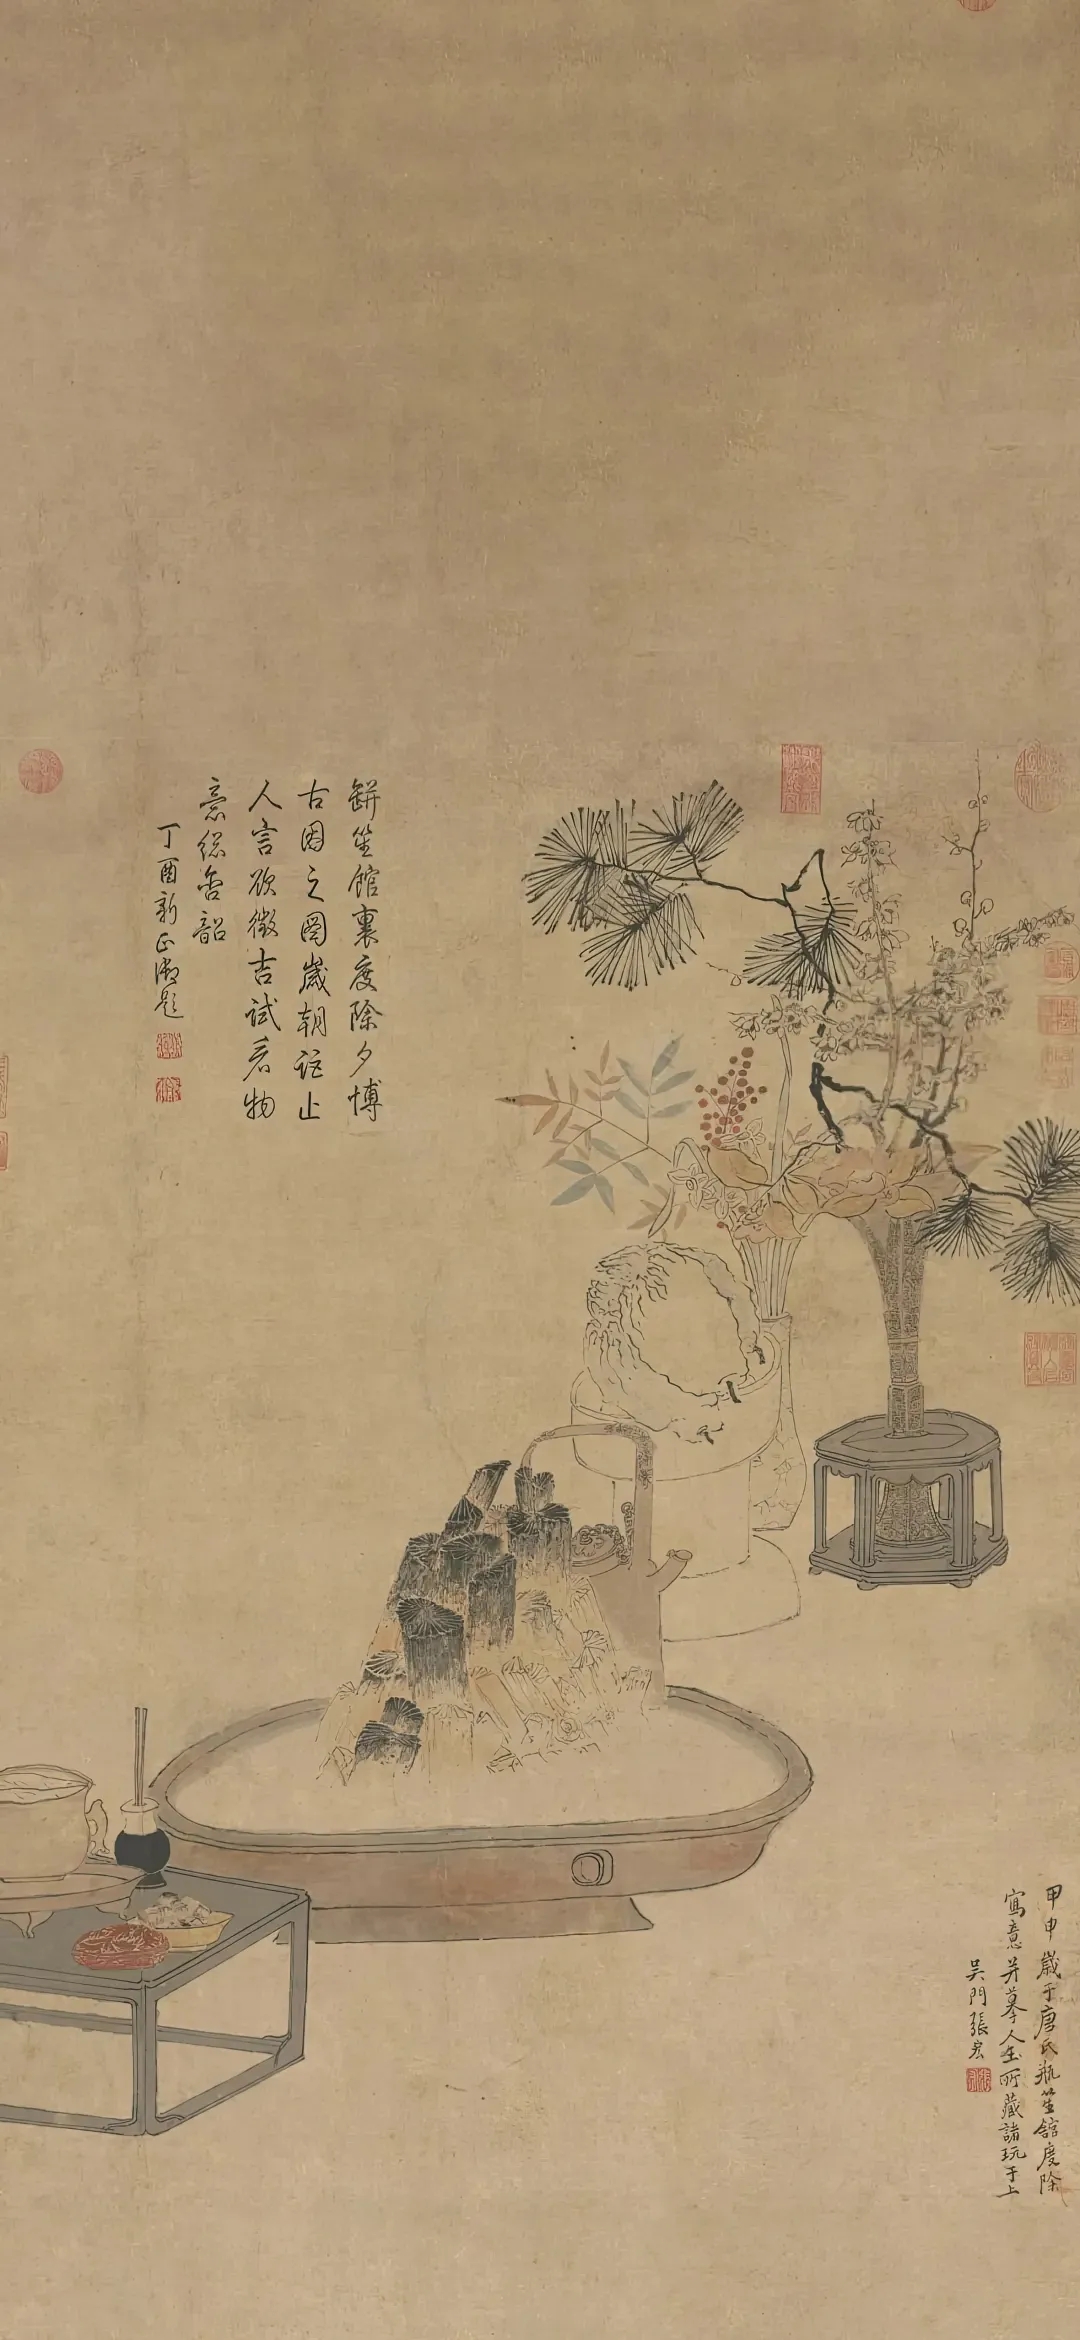 缾笙館裏度除夕博
古因之圖歲朝詎止
人言欲徵吉試看物
意総含韶
丁酉新正御題
甲申歲于唐氏瓶笙館度除
寫意并摹人玉所藏諸玩于上
吴門張宏